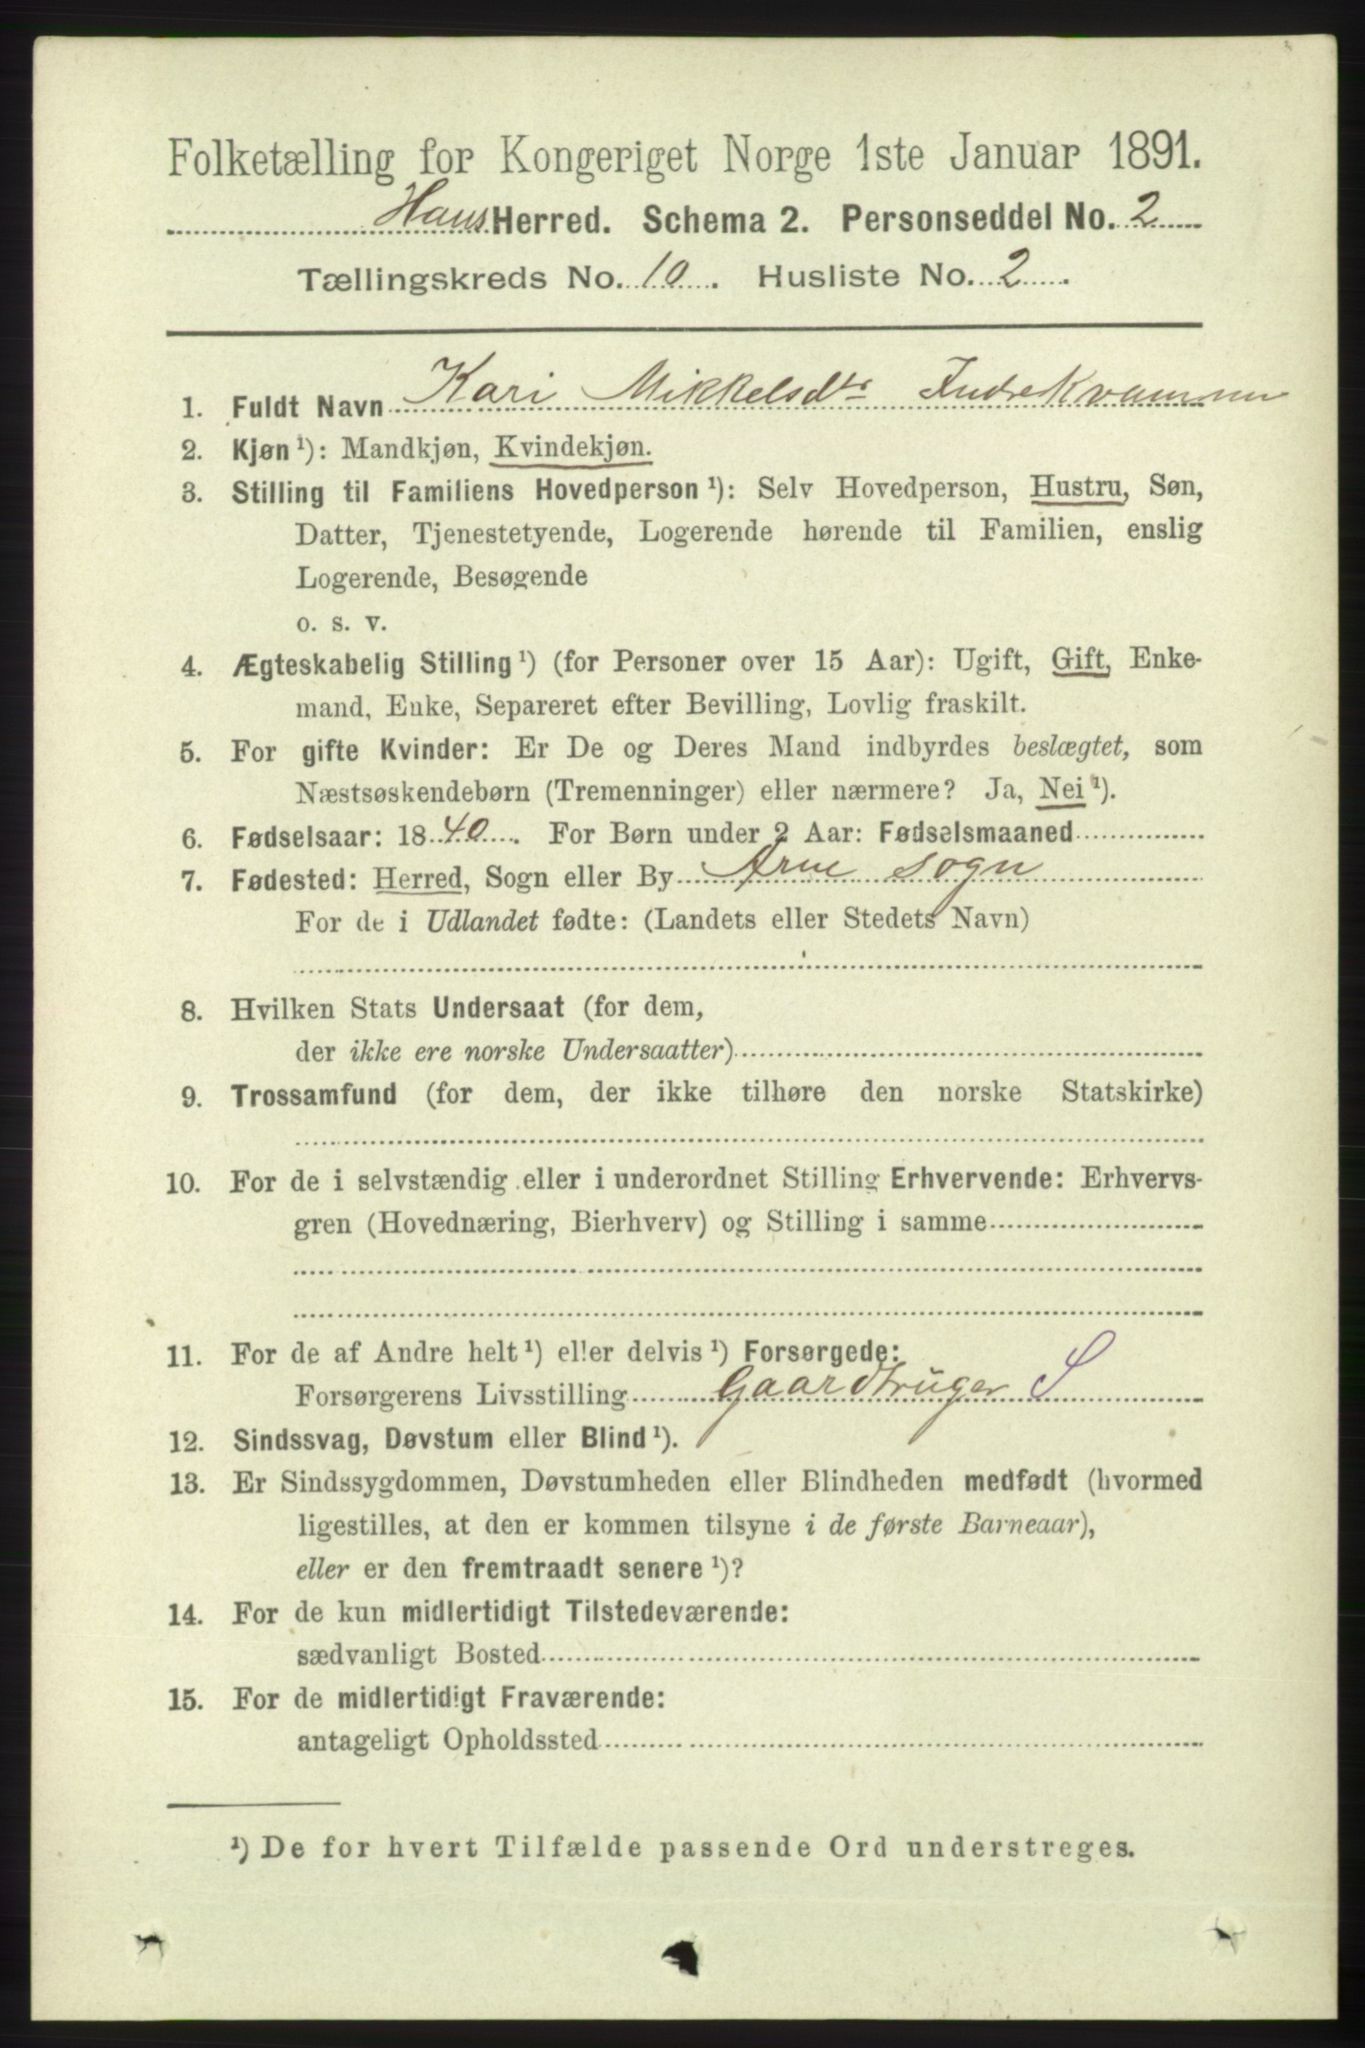 Folketælling for Kongeriget Norge 1ste Januar 1891.
Haus Herred. Schema 2. Personseddel No. 2
Tællingskreds No. 10. Husliste No. 2.
1. Fuldt Navn Kari Mikkelsdtr Indre Kvammen
2. Kjøn ¹): Mandkjøn, Kvindekjøn.
3. Stilling til Familiens Hovedperson ¹): Selv Hovedperson, Hustru, Søn,
Datter, Tjenestetyende, Logerende hørende til Familien, enslig
Logerende, Besøgende
o. s. v.
4. Ægteskabelig Stilling ¹) (for Personer over 15 Aar): Ugift, Gift, Enke-
mand, Enke, Separeret efter Bevilling, Lovlig fraskilt.
5. For gifte Kvinder: Er De og Deres Mand indbyrdes beslægtet, som
Næstsøskendebørn (Tremenninger) eller nærmere? Ja, Nei ¹).
6. Fødselsaar: 1840. For Børn under 2 Aar: Fødselsmaaned
7. Fødested: Herred, Sogn eller By Arne sogn
For de i Udlandet fødte: (Landets eller Stedets Navn)
8. Hvilken Stats Undersaat (for dem,
der ikke ere norske Undersaatter)
9. Trossamfund (for dem, der ikke tilhøre den norske Statskirke)
10. For de i selvstændig eller i underordnet Stilling Erhvervende: Erhvervs-
gren (Hovednæring, Bierhverv) og Stilling i samme
11. For de af Andre helt ¹) eller delvis ¹) Forsørgede:
Forsørgerens Livsstilling Gaardbruger S
12. Sindssvag, Døvstum eller Blind ¹).
13. Er Sindssygdommen, Døvstumheden eller Blindheden medfødt (hvormed
ligestilles, at den er kommen tilsyne i de første Barneaar),
eller er den fremtraadt senere ¹)?
14. For de kun midlertidigt Tilstedeværende:
sædvanligt Bosted
15. For de midlertidigt Fraværende:
antageligt Opholdssted
¹) De for hvert Tilfælde passende Ord understreges.